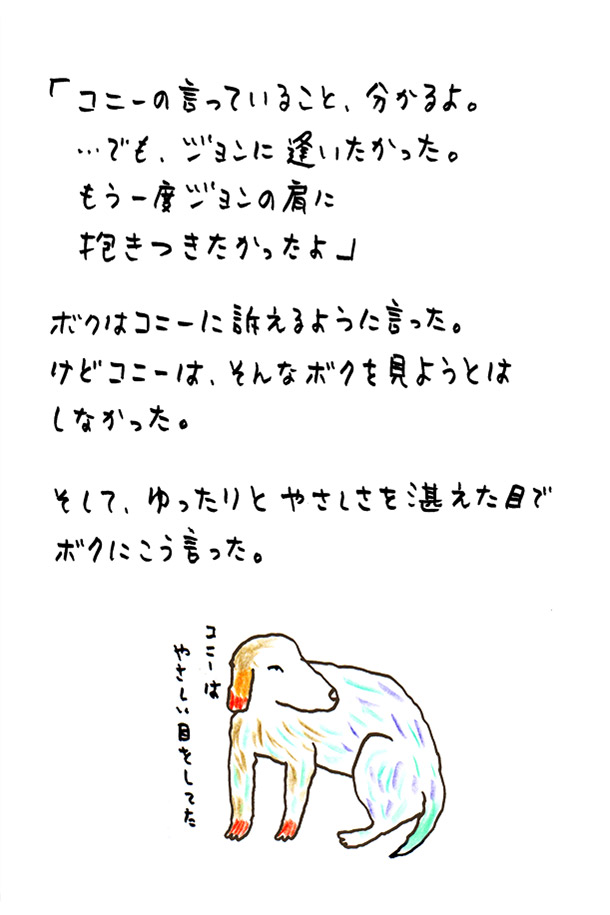 「コニーの言っていること、分かるよ。
…でも、ジョンに逢いたかった。
もう一度ジョンの肩に
抱きつきたかったよ」
ボクはコニーに訴えるように言った。
けどコニーは、そんなボクを見ようとは
しなかった。
そして、ゆったりとやさしさを湛えた目で
ボクにこう言った。
コニーは
やさしい目をしてた